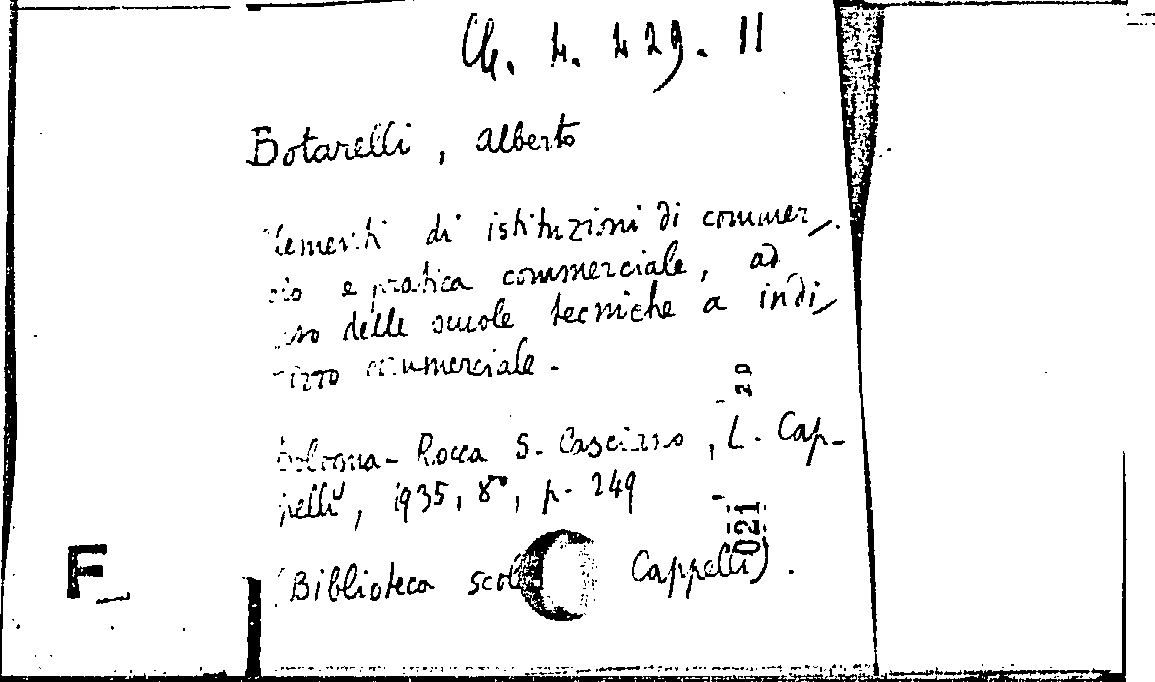 Ch. 4. 429. II
Botarelli, Alberto
Elementi di istituzioni di commer-
cio e pratica commerciale, ad
uso delle scuole tecniche a indi-
rizzo commerciale.
20
Bologna - Rocca S. Casciano, L. Cap-
pelli, 1935, 8°, p. 249
021
(Biblioteca scol Cappelli).
F